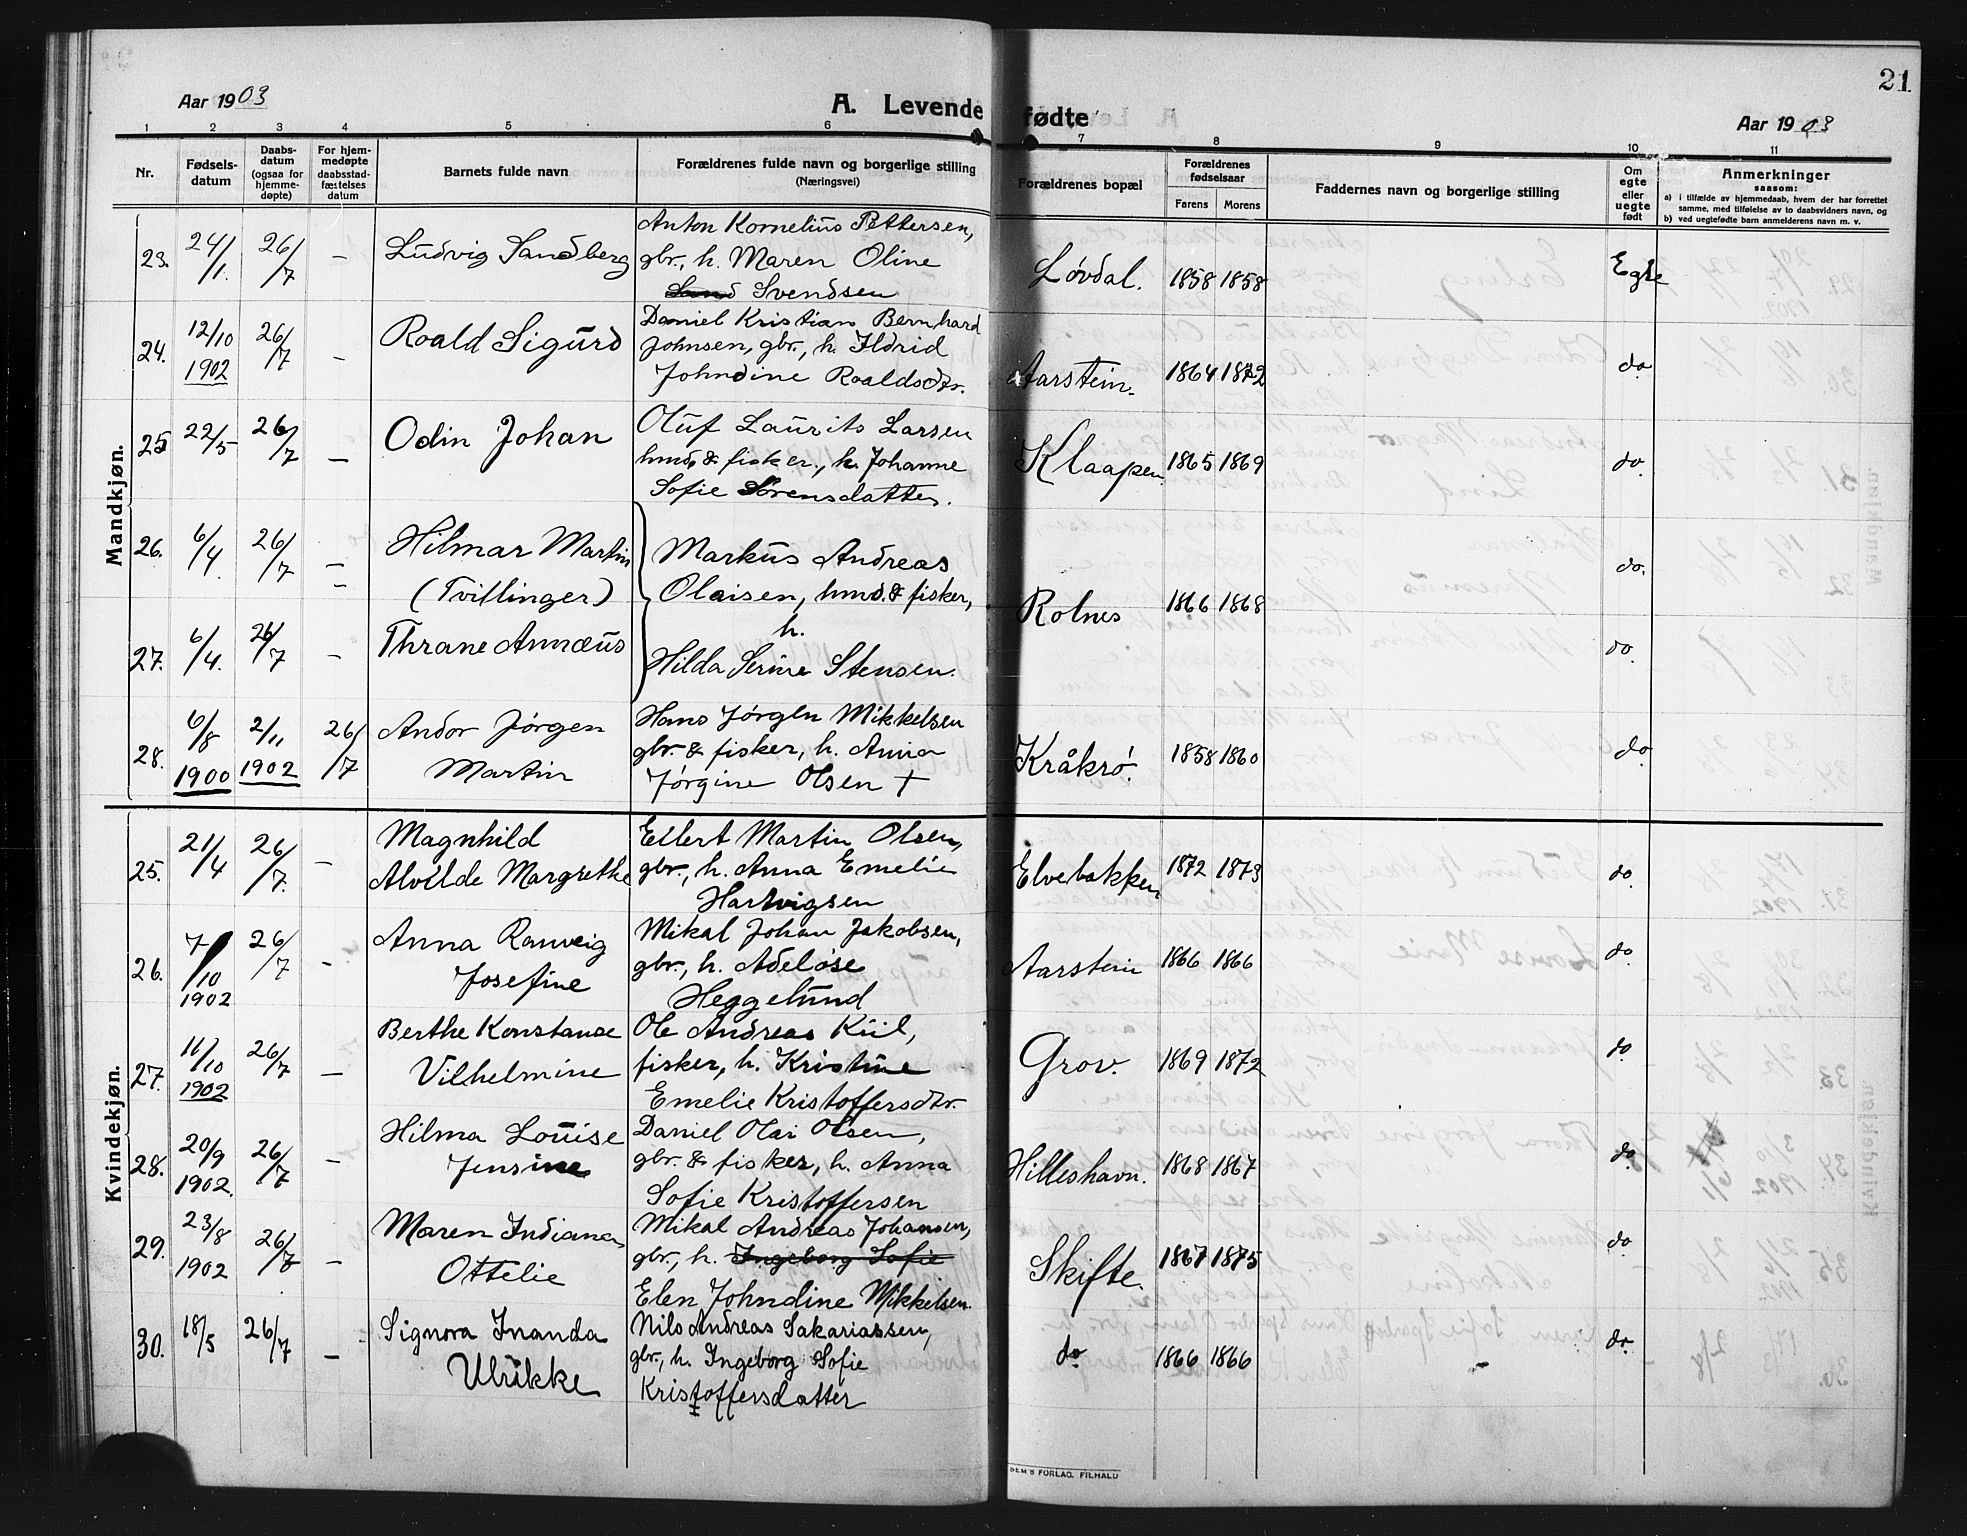 21
Aar 1903
A. Levende fødte
Aar 1903
1 2 3 4 5 6 7 8 9 10 11
Nr.
Fødsels-
datum
Daabs-
datum
(ogsaa for
hjemme-
døpte)
For hjem-
medøpte
daabsstad-
fæstelses
datum
Barnets fulde navn
Forældrenes fulde navn og borgerlige stilling
(Næringsvei)
Forældrenes bopæl
Forældrenes
fødselsaar
Farens Morens
Faddernes navn og borgerlige stilling
Om
egte
eller
uegte
født
Anmerkninger
saasom:
a) i tilfælde av hjemmedaab, hvem der har forrettet
samme, med tilføielse av to daabsvidners navn, og
b) ved uegtefødte barn anmelderens navn m. v.
Mandkjøn.
23. 24/1. 26/7 – Ludvig Sandberg
Anton Kornelius Pettersen,
gbr., h. Maren Oline
Svendsen
Løvdal. 1858 1858 Egte
24. 12/10 1902 26/7 – Roald Sigurd
Daniel Kristian Bernhard
Johnsen, gbr., h. Ildrid
Johndine Roaldsdtr.
Aarstein. 1864 1872 do
25 22/5 26/7 – Odin Johan
Oluf Laurits Larsen
hmd. & fisker, h. Johanne
Sofie Sørensdatter.
Klaapen 1865 1869 do
26. 6/4. 26/7 – Hilmar Martin
(Tvillinger)
Markus Andreas
Olaisen, hmd. & fisker,
h.
Hilda Serine Stensen.
Rolnes 1866 1868 do.
27. 6/4. 26/7 – Thrane Annæus
do.
28. 6/8 1900 2/11 1902 26/7 Andor Jørgen
Martin
Hans Jørgen Mikkelsen
gbr. & fisker, h. Anna
Jørgine Olsen †
Kråkrø. 1858 1860 do
Kvindekjøn.
25. 21/4 26/7. – Magnhild
Alvilde Margrethe
Ellert Martin Olsen,
gbr., h. Anna Emelie
Hartvigsen
Elvebakken 1872 1873 do.
26. 7/10 1902 26/7 – Anna Ranveig
Josefine
Mikal Johan Jakobsen,
gbr., h. Adeløse
Heggelund
Aarstein 1866 1866 do.
27. 11/10 1902 26/7 – Berthe Konstanse
Vilhelmine
Ole Andreas Kiil,
fisker, h. Kristine
Emelie Kristoffersdtr.
Grov. 1869 1872 do
28. 20/9 1902. 26/7 – Hilma Louise
Jensine
Daniel Olai Olsen,
gbr. & fisker, h. Anna
Sofie Kristoffersen
Hilleshavn. 1868 1867 do.
29. 23/8 1902 26/7 – Maren Indiana
Ottelie
Mikal Andreas Johansen,
gbr., h. Ingeborg Sofie
Elen Johndine Mikkelsen.
Skifte. 1867 1875 do.
30. 18/5 26/7 – Signora Inanda
Ulrikke
Nils Andreas Sakariassen,
gbr., h. Ingeborg Sofie
Kristoffersdatter
do 1866 1866 do.
SEM'S FORLAG, FR.HALD